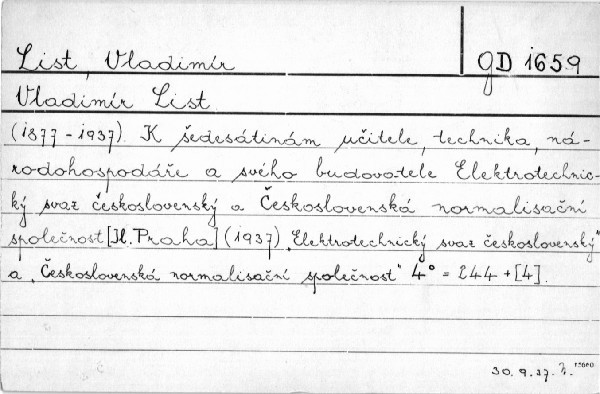 List, Vladimír
gD 1659
Vladimír List.
(1877-1937). K šedesátinám učitele, technika, ná-
rodohospodáře a svého budovatele Elektrotechnic-
ký svaz československý a Československá normalisační
společnost [Il. Praha] (1937) „Elektrotechnický svaz československý“
a „Československá normalisační společnost“ 4° = 244 + [4].
30.9.37.